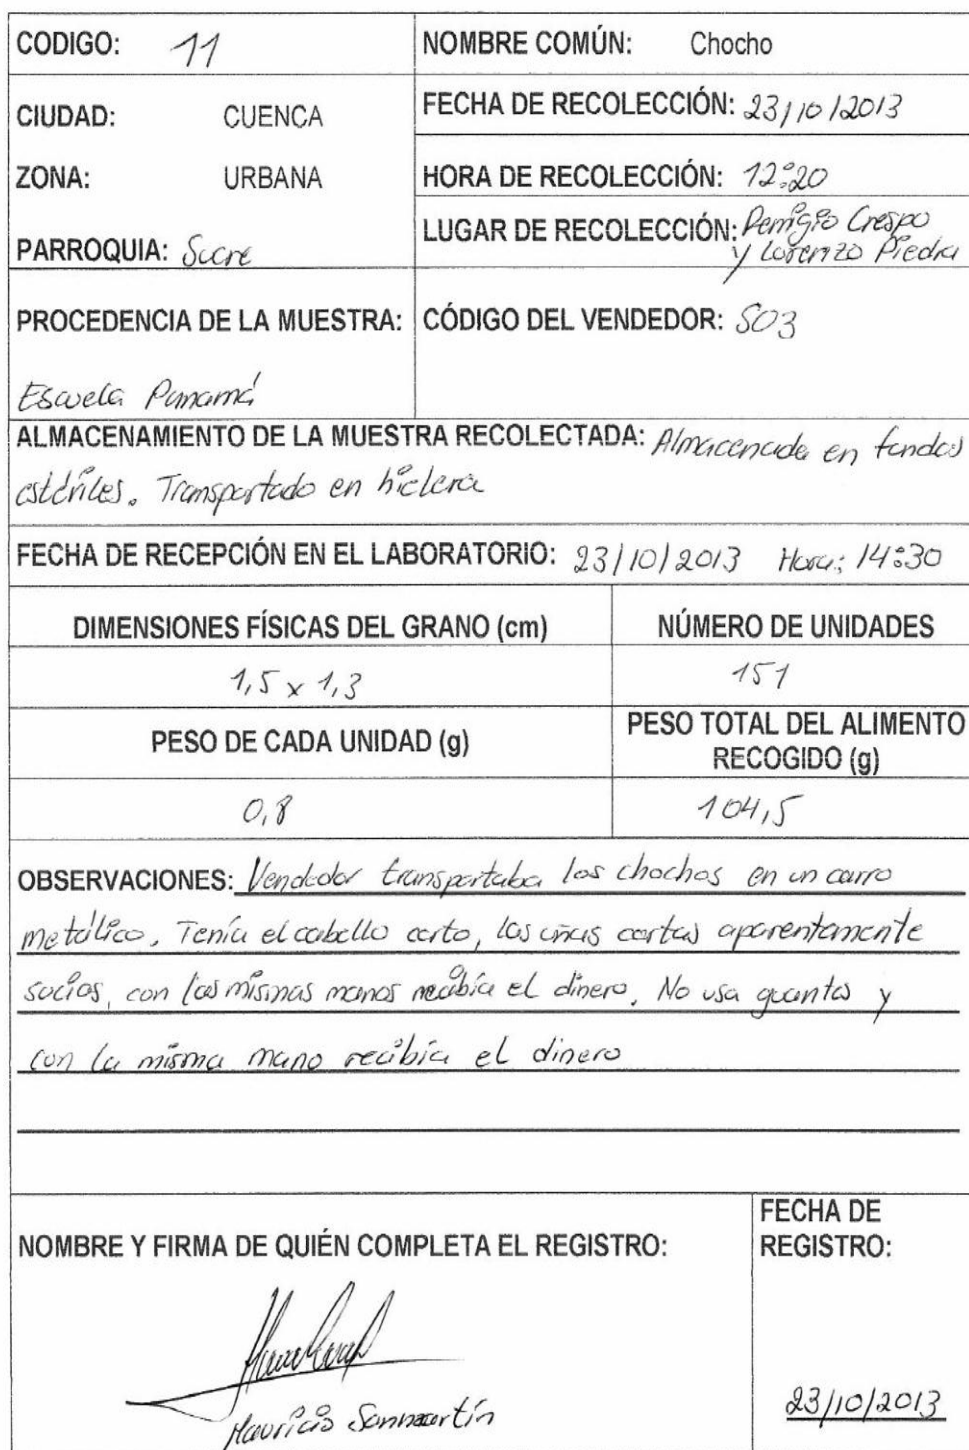 CODIGO: 11
NOMBRE COMÚN: Chocho
CIUDAD: CUENCA
FECHA DE RECOLECCIÓN: 23/10/2013
ZONA: URBANA
HORA DE RECOLECCIÓN: 12:20
PARROQUIA: Sucre
LUGAR DE RECOLECCIÓN: Remigio Crespo
y Lorenzo Piedra
PROCEDENCIA DE LA MUESTRA:
Escuela Panamá
CÓDIGO DEL VENDEDOR: S03
ALMACENAMIENTO DE LA MUESTRA RECOLECTADA: Almacenada en fundas
estériles. Transportado en hielera
FECHA DE RECEPCIÓN EN EL LABORATORIO: 23/10/2013 Hora: 14:30
DIMENSIONES FÍSICAS DEL GRANO (cm)
NÚMERO DE UNIDADES
1,5 x 1,3
151
PESO DE CADA UNIDAD (g)
PESO TOTAL DEL ALIMENTO
RECOGIDO (g)
0,8
104,5
OBSERVACIONES: Vendedor transportaba los chochos en un carro
metálico. Tenía el cabello corto, las uñas cortas aparentemente
sucias, con las mismas manos recibía el dinero. No usa guantes y
con la misma mano recibía el dinero
NOMBRE Y FIRMA DE QUIÉN COMPLETA EL REGISTRO:
Mauricio Sanmartín
FECHA DE
REGISTRO:
23/10/2013